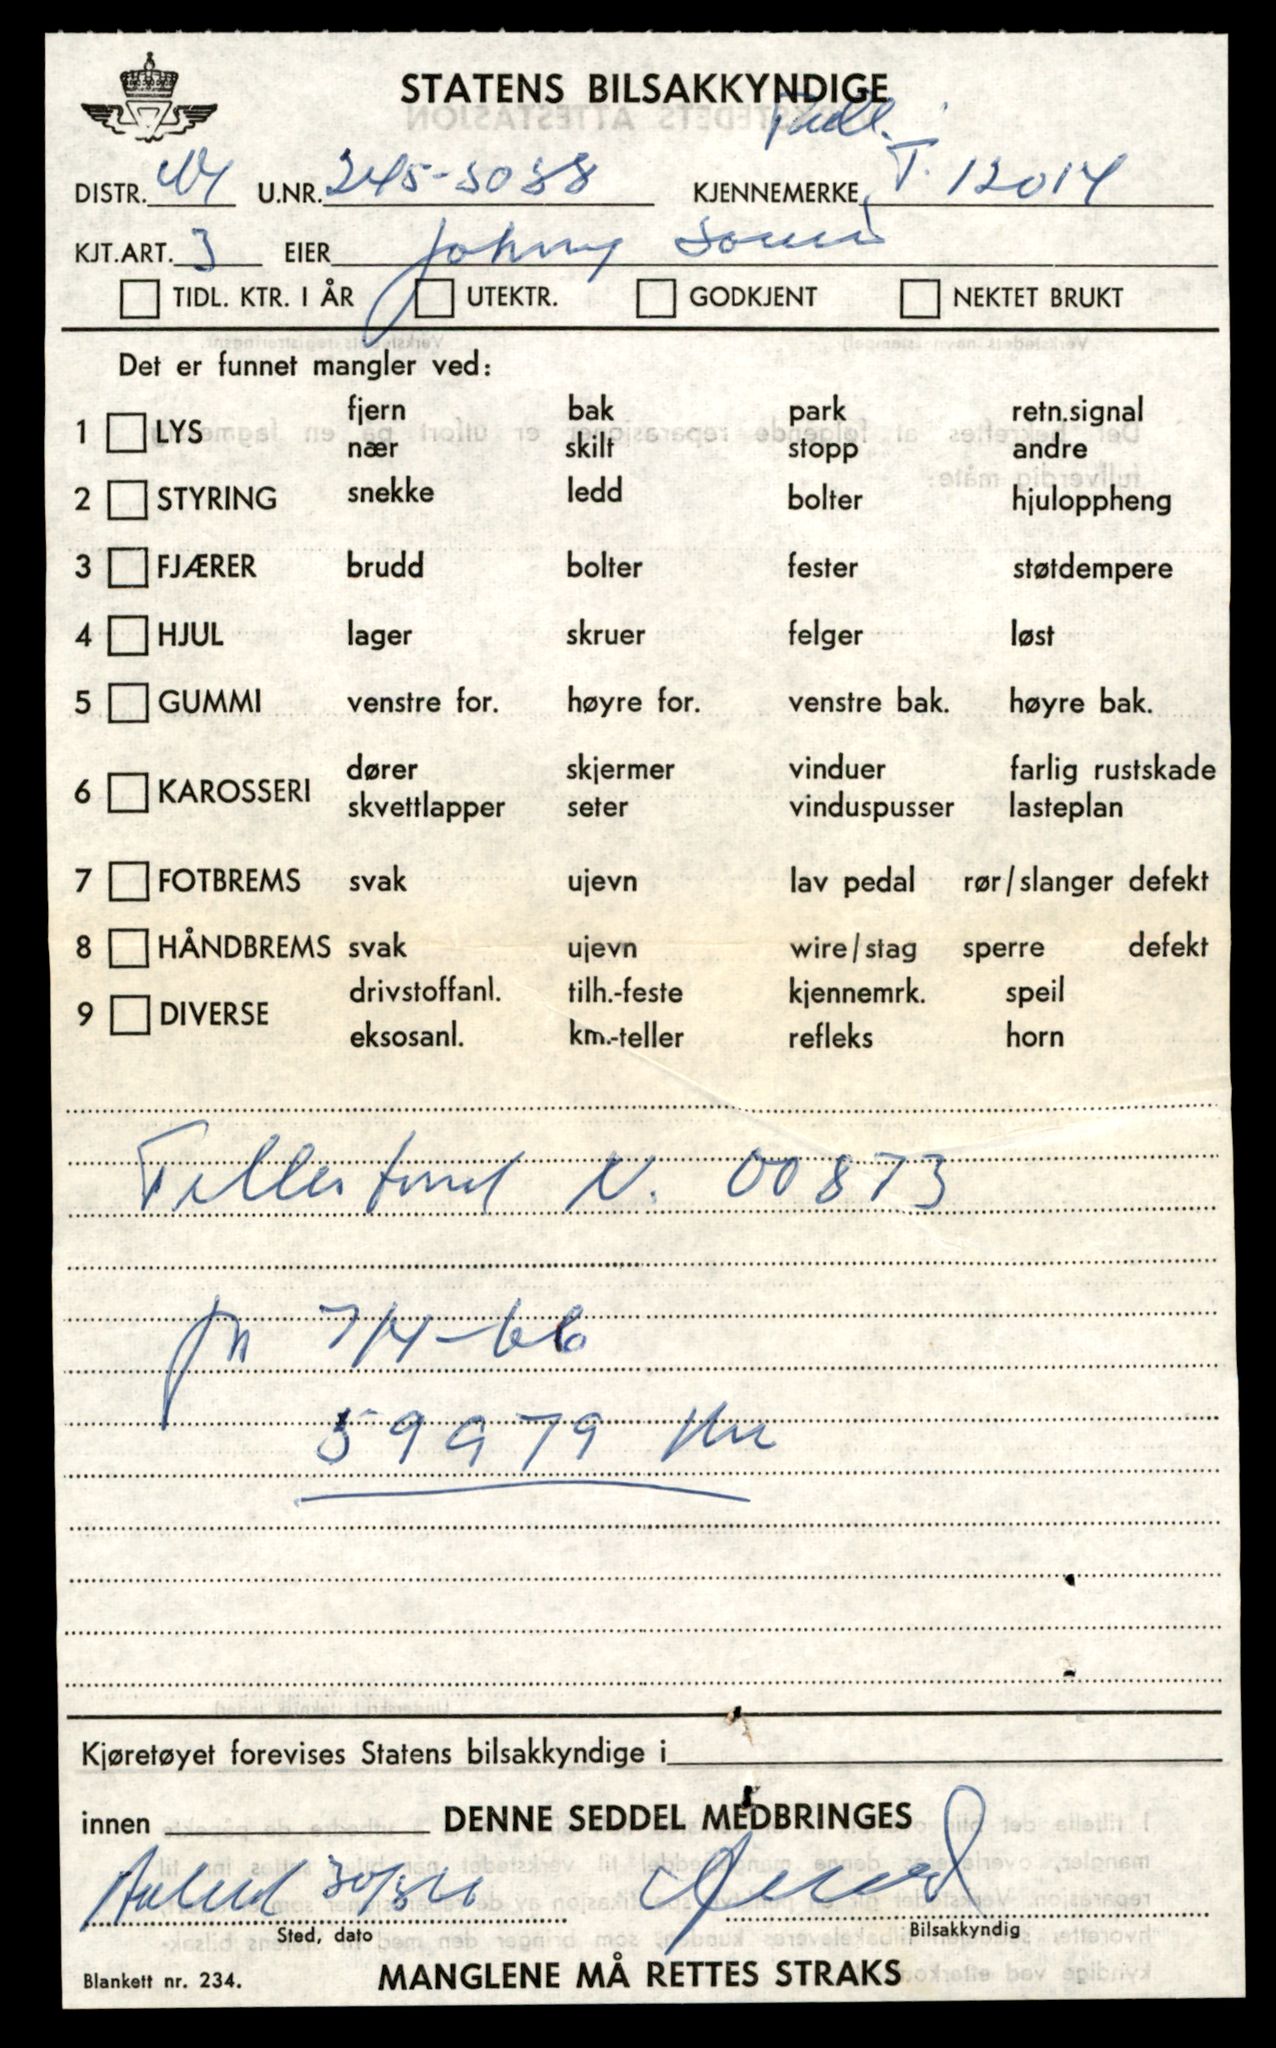 STATENS BILSAKKYNDIGE
DISTR. U.NR. 245-3038 KJENNEMERKE T. 12014
KJT.ART. 3 EIER Johny
TIDL. KTR. I ÅR UTEKTR. GODKJENT NEKTET BRUKT
Det er funnet mangler ved:
fjern bak park retn.signal
1 LYS
nær skilt stopp andre
2 STYRING snekke ledd bolter hjuloppheng
3 FJÆRER brudd bolter fester støtdempere
4 HJUL lager skruer felger løst
5 GUMMI venstre for. høyre for. venstre bak. høyre bak.
dører skjermer vinduer farlig rustskade
6 KAROSSERI
skvettlapper seter vinduspusser lasteplan
7 FOTBREMS svak ujevn lav pedal rør/slanger defekt
8 HÅNDBREMS svak ujevn wire/stag sperre defekt
drivstoffanl. tilh.-feste kjennemrk. speil
9 DIVERSE
eksosanl. km.-teller refleks horn
N. 00873
7/4-66
59979 Km
Kjøretøyet forevises Statens bilsakkyndige i
innen DENNE SEDDEL MEDBRINGES
Sted, dato Bilsakkyndig
Blankett nr. 234. MANGLENE MÅ RETTES STRAKS